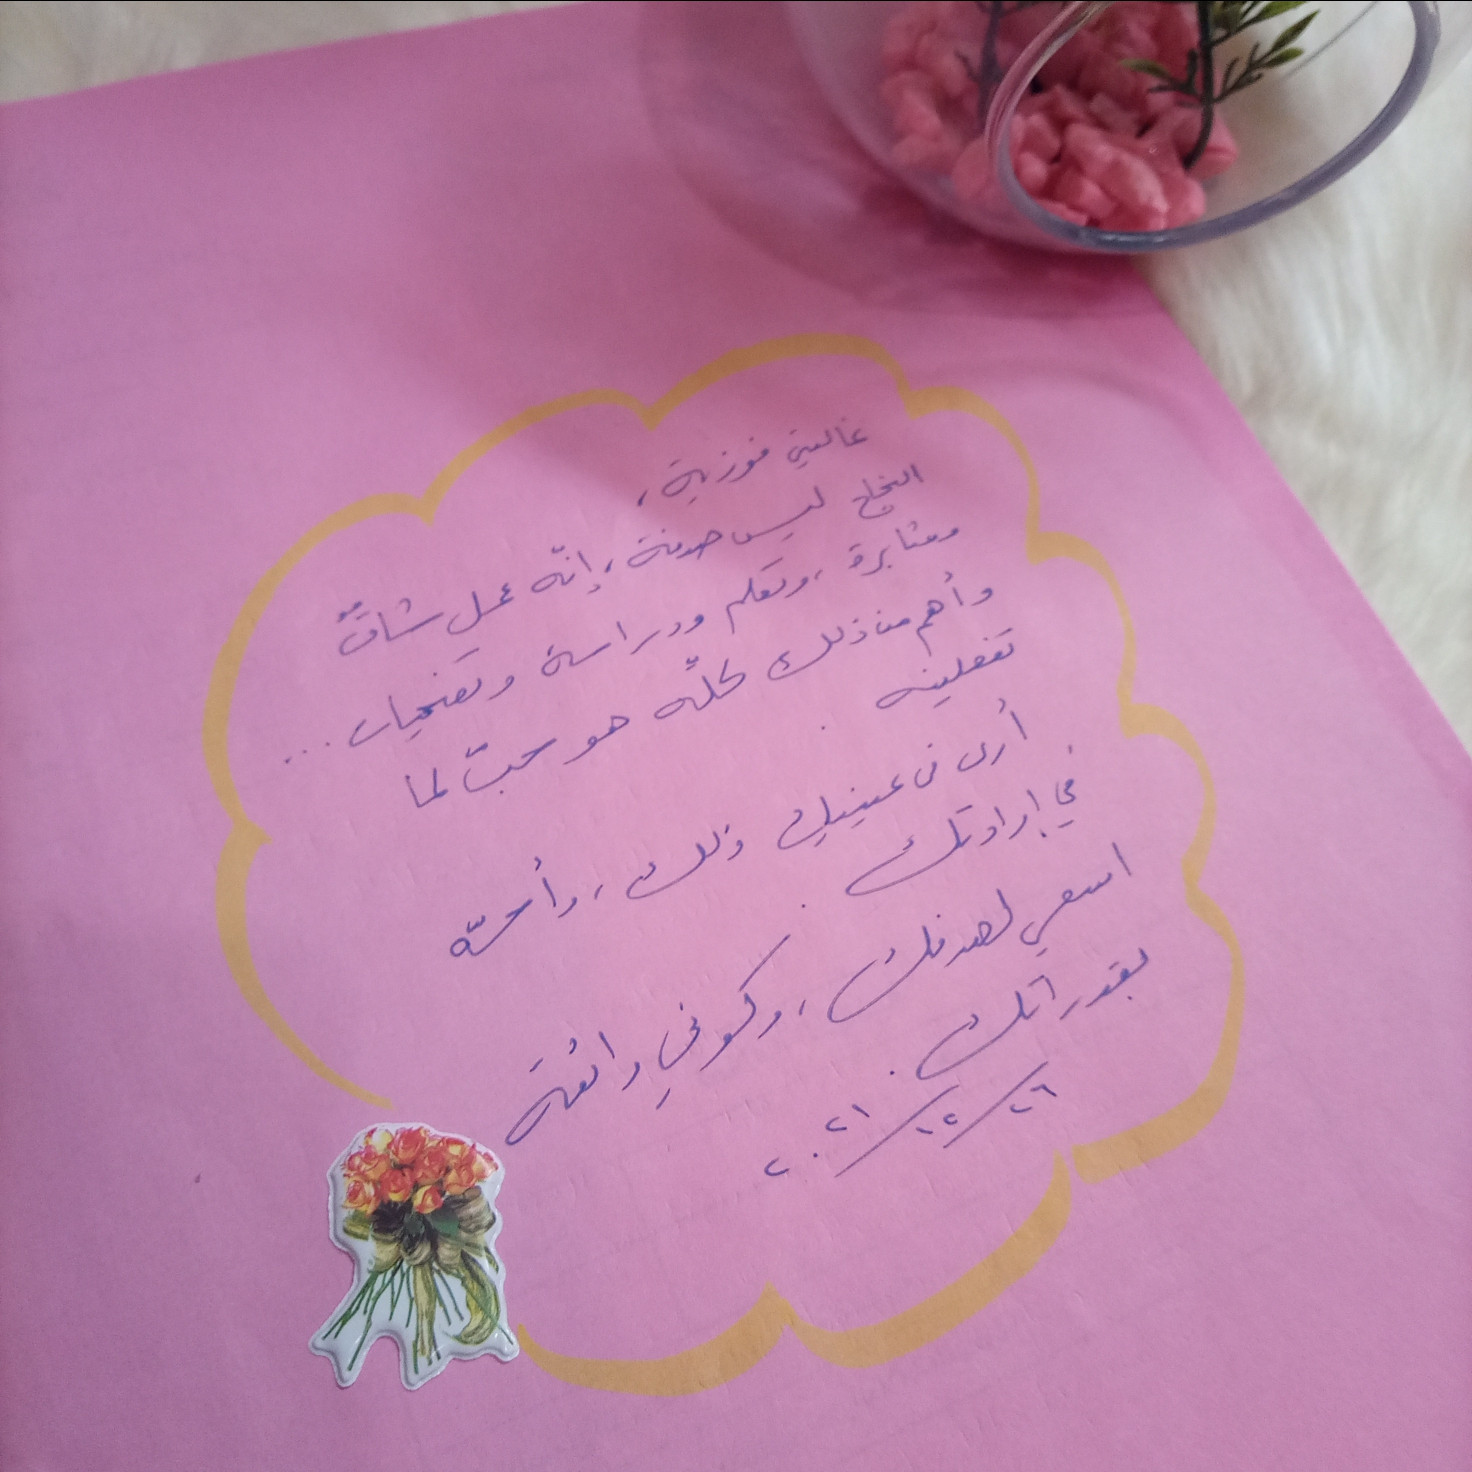 غاليتي فوزية،
النجاح ليس صدفة، إنّه عمل شاقٌّ
ومثابرة، وتعلم ودراسة وتضحيات...
وأهم من ذلك كلّه هو حبّ لما
تفعلينه.
أرى في عينيكِ ذلك، وأحسّه
في إرادتك.
اسعي لهدفك، وكوني رائعة
بقدراتك.
٢٠٢١/١٢/٢٦